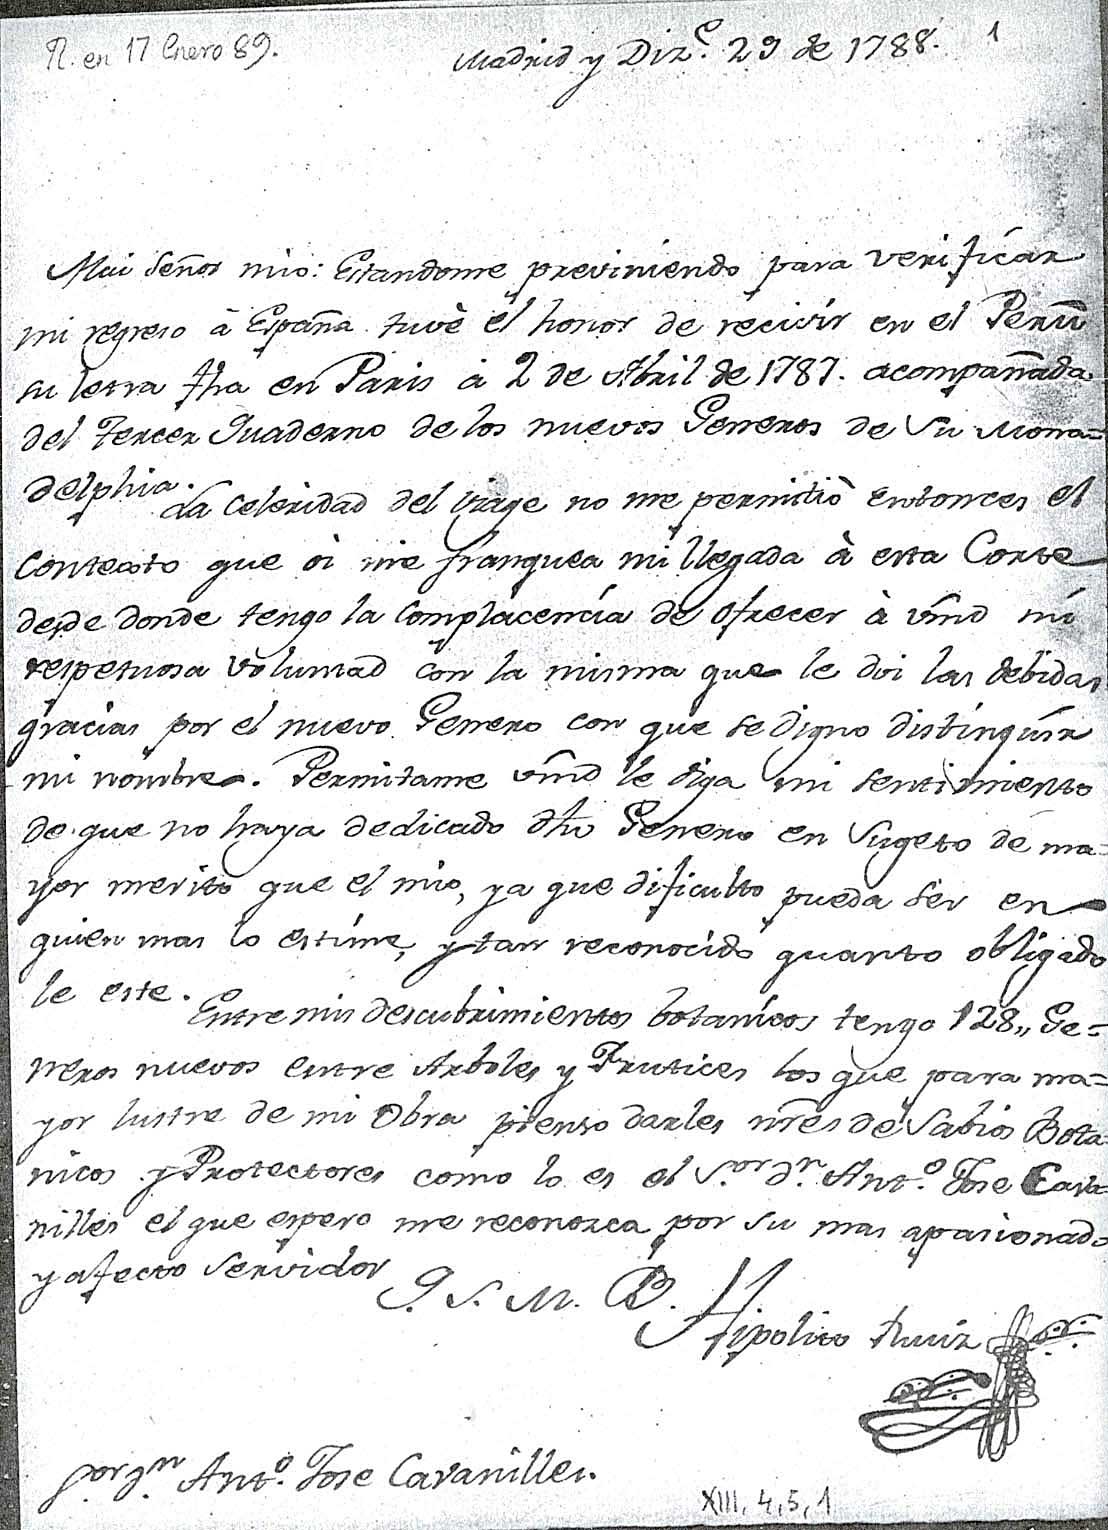 R. en 17 Enero 89.
Madrid y Diz.e 29 de 1788.
1
Mui Señor mio: Estandome previniendo para verificar
mi regreso à España tuvè el honor de recivir en el Perù
su letra fha en Paris à 2 de Abril de 1787. acompañada
del tercer Quaderno de los nuevos Generos de Su Mona=
delphia.
La Celeridad del viage no me permitiò entonces el
Contexto que oi me franquea mi llegada à esta Corte
desde donde tengo la Complacencia de ofrecer à Vmd mi
respetuosa voluntad con la misma que le doi las debidas
gracias por el nuevo Genero con que se digno distinguir
mi nombre. Permitame Vmd le diga mi sentimiento
de que no haya dedicado dho Genero en Sugeto de ma=
yor merito que el mio, ya que dificulto pueda ser en
quien mas lo estime, y tan reconocido quanto obligado
le este.
Entre mis descubrimientos botanicos tengo 128,, Ge=
neros nuevos entre Arboles y Frutices los que para ma=
yor lustre de mi Obra pienso darles nres de Sabios Bota=
nicos y Protectores como lo es el S.or d.n Ant.o Jose Cava=
nilles el que espero me reconozca por su mas apasionado
y afecto Servidor
Q. S. M. B.
Hipolito Ruiz
S.or d.n Ant.o Jose Cavanilles.
XIII, 4, 5, 1